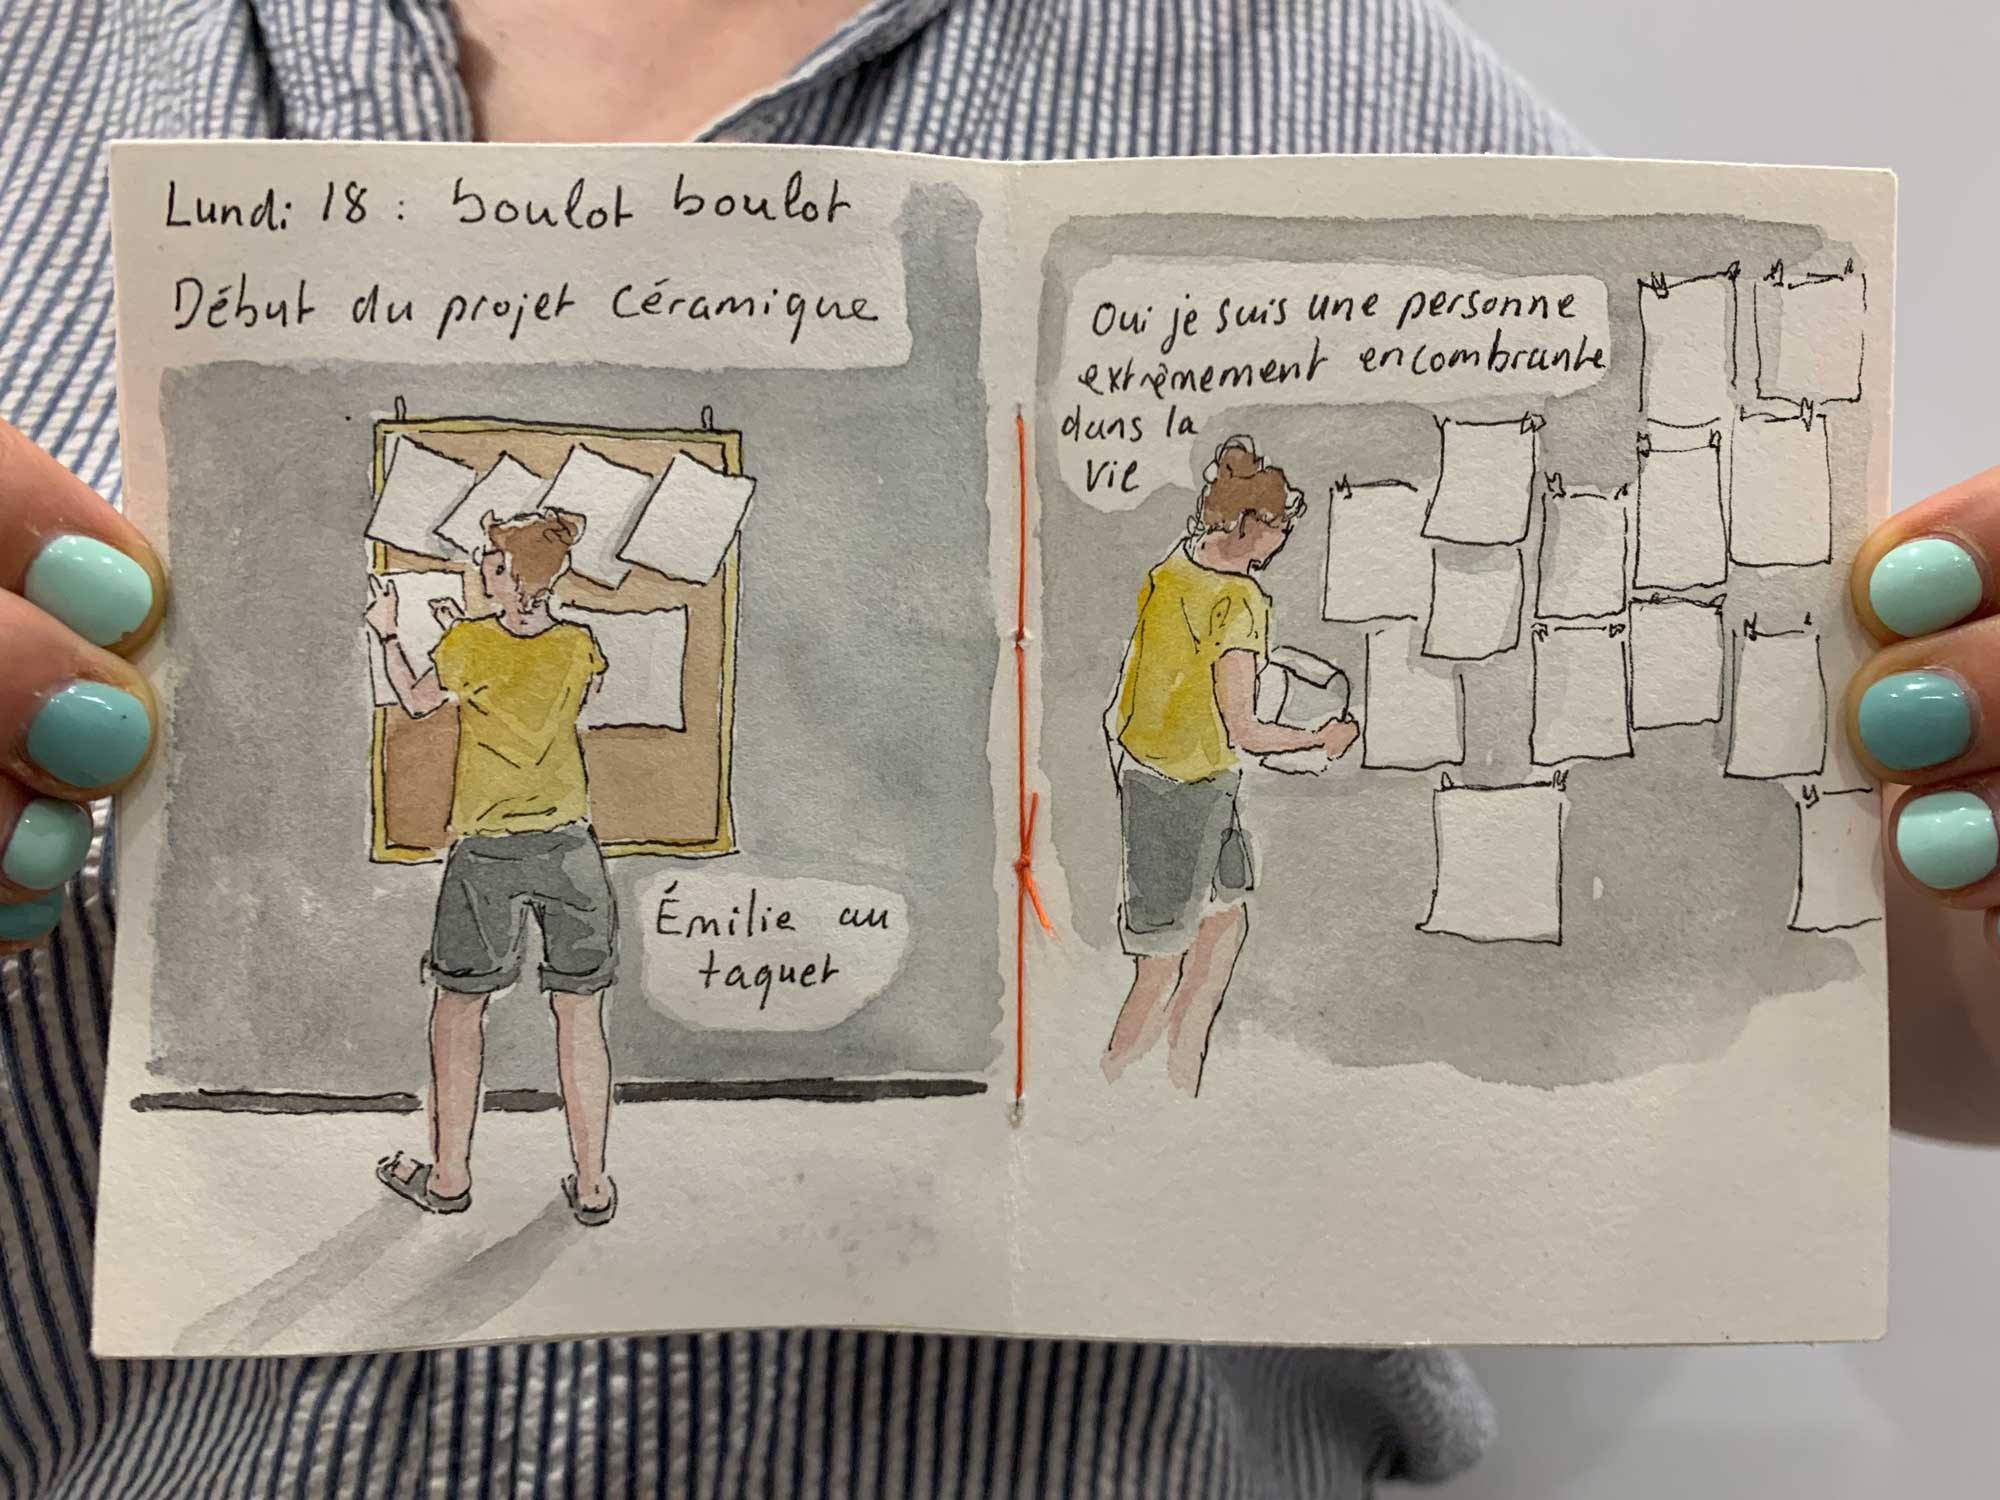 Lundi 18 : boulot boulot
Début du projet Céramique
Émilie au
taquet
Oui je suis une personne
extrêmement encombrante
dans la
vie